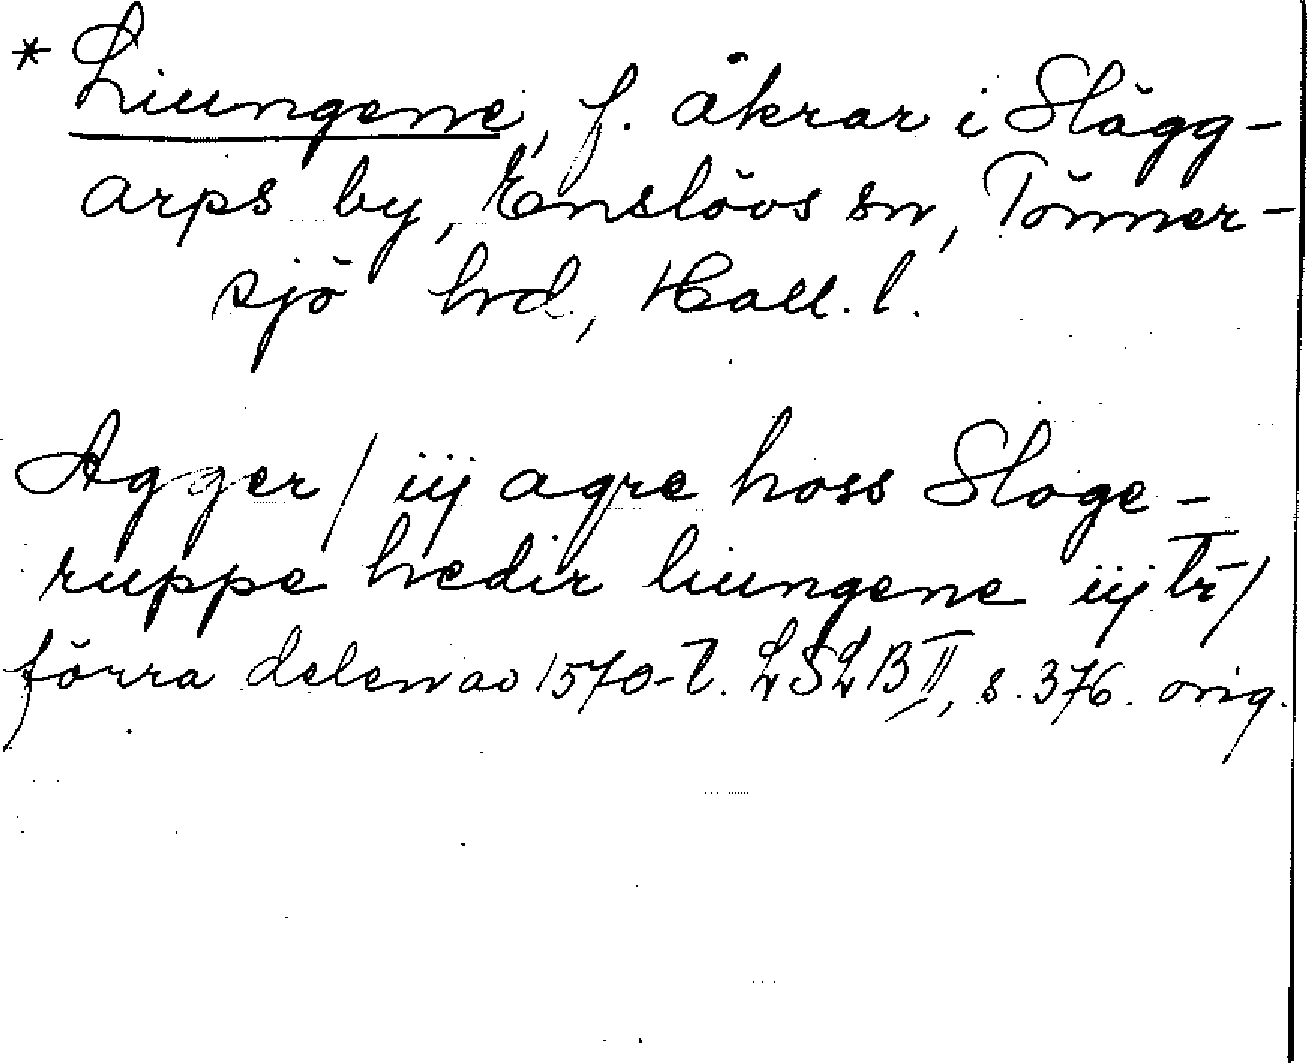 * Liungene, f. åkrar i Slägg-
arps by, Enslövs sn, Tönner-
sjö hrd, Hall. l.
Agger / iij agre hoss Sloge-
ruppe hedir liungene iij tr /
förra delen av 1570-t. LSLB II, s. 376. orig.